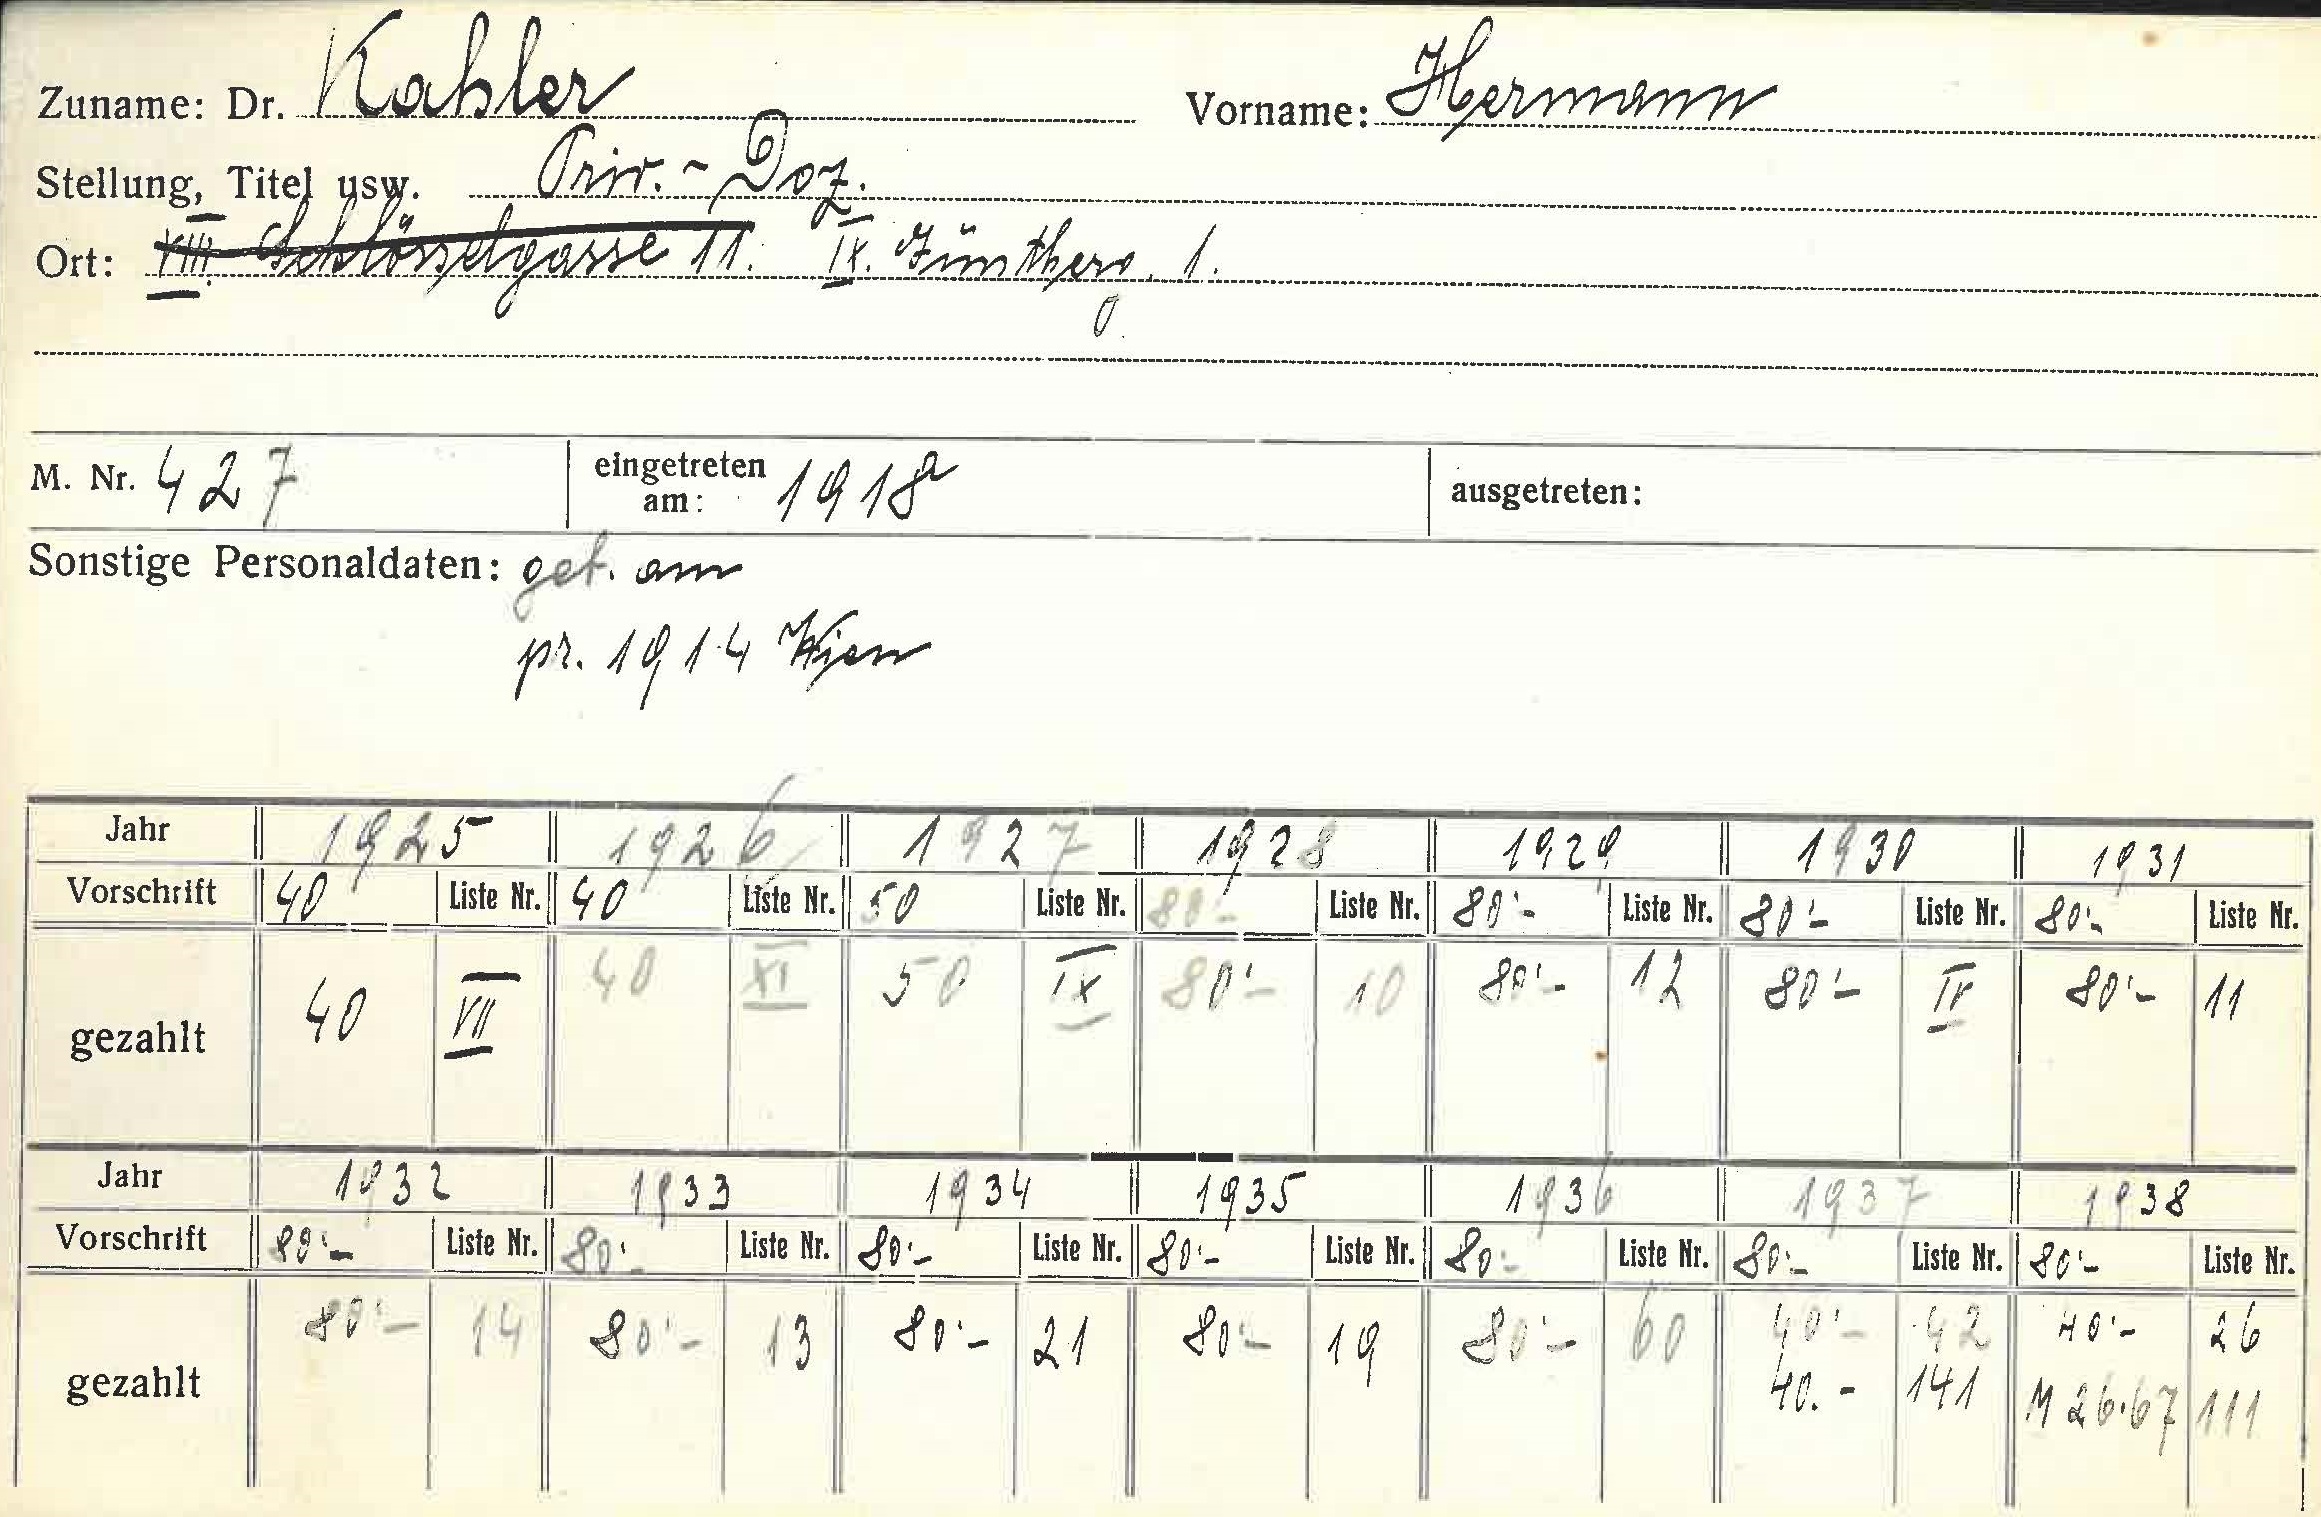 Zuname: Dr. Kahler Vorname: Hermann
Stellung, Titel usw. Priv.-Doz.
Ort: VIII. Schlösselgasse 11. IX. Güntherg. 1.
M. Nr. 427 eingetreten am: 1918 ausgetreten:
Sonstige Personaldaten: geb. am
pr. 1914 Wien
Jahr 1925 1926 1927 1928 1929 1930 1931
Vorschrift 40 Liste Nr. 40 Liste Nr. 50 Liste Nr. 80·- Liste Nr. 80·- Liste Nr. 80·- Liste Nr. 80·- Liste Nr.
gezahlt 40 VII 40 XI 50 IX 80·- 10 80·- 12 80·- IV 80·- 11
Jahr 1932 1933 1934 1935 1936 1937 1938
Vorschrift 80·- Liste Nr. 80·- Liste Nr. 80·- Liste Nr. 80·- Liste Nr. 80·- Liste Nr. 80·- Liste Nr. 80·- Liste Nr.
gezahlt 80·- 14 80·- 13 80·- 21 80·- 19 80·- 60 40·- 42 40·- 26
40.- 141 M 26·67 111